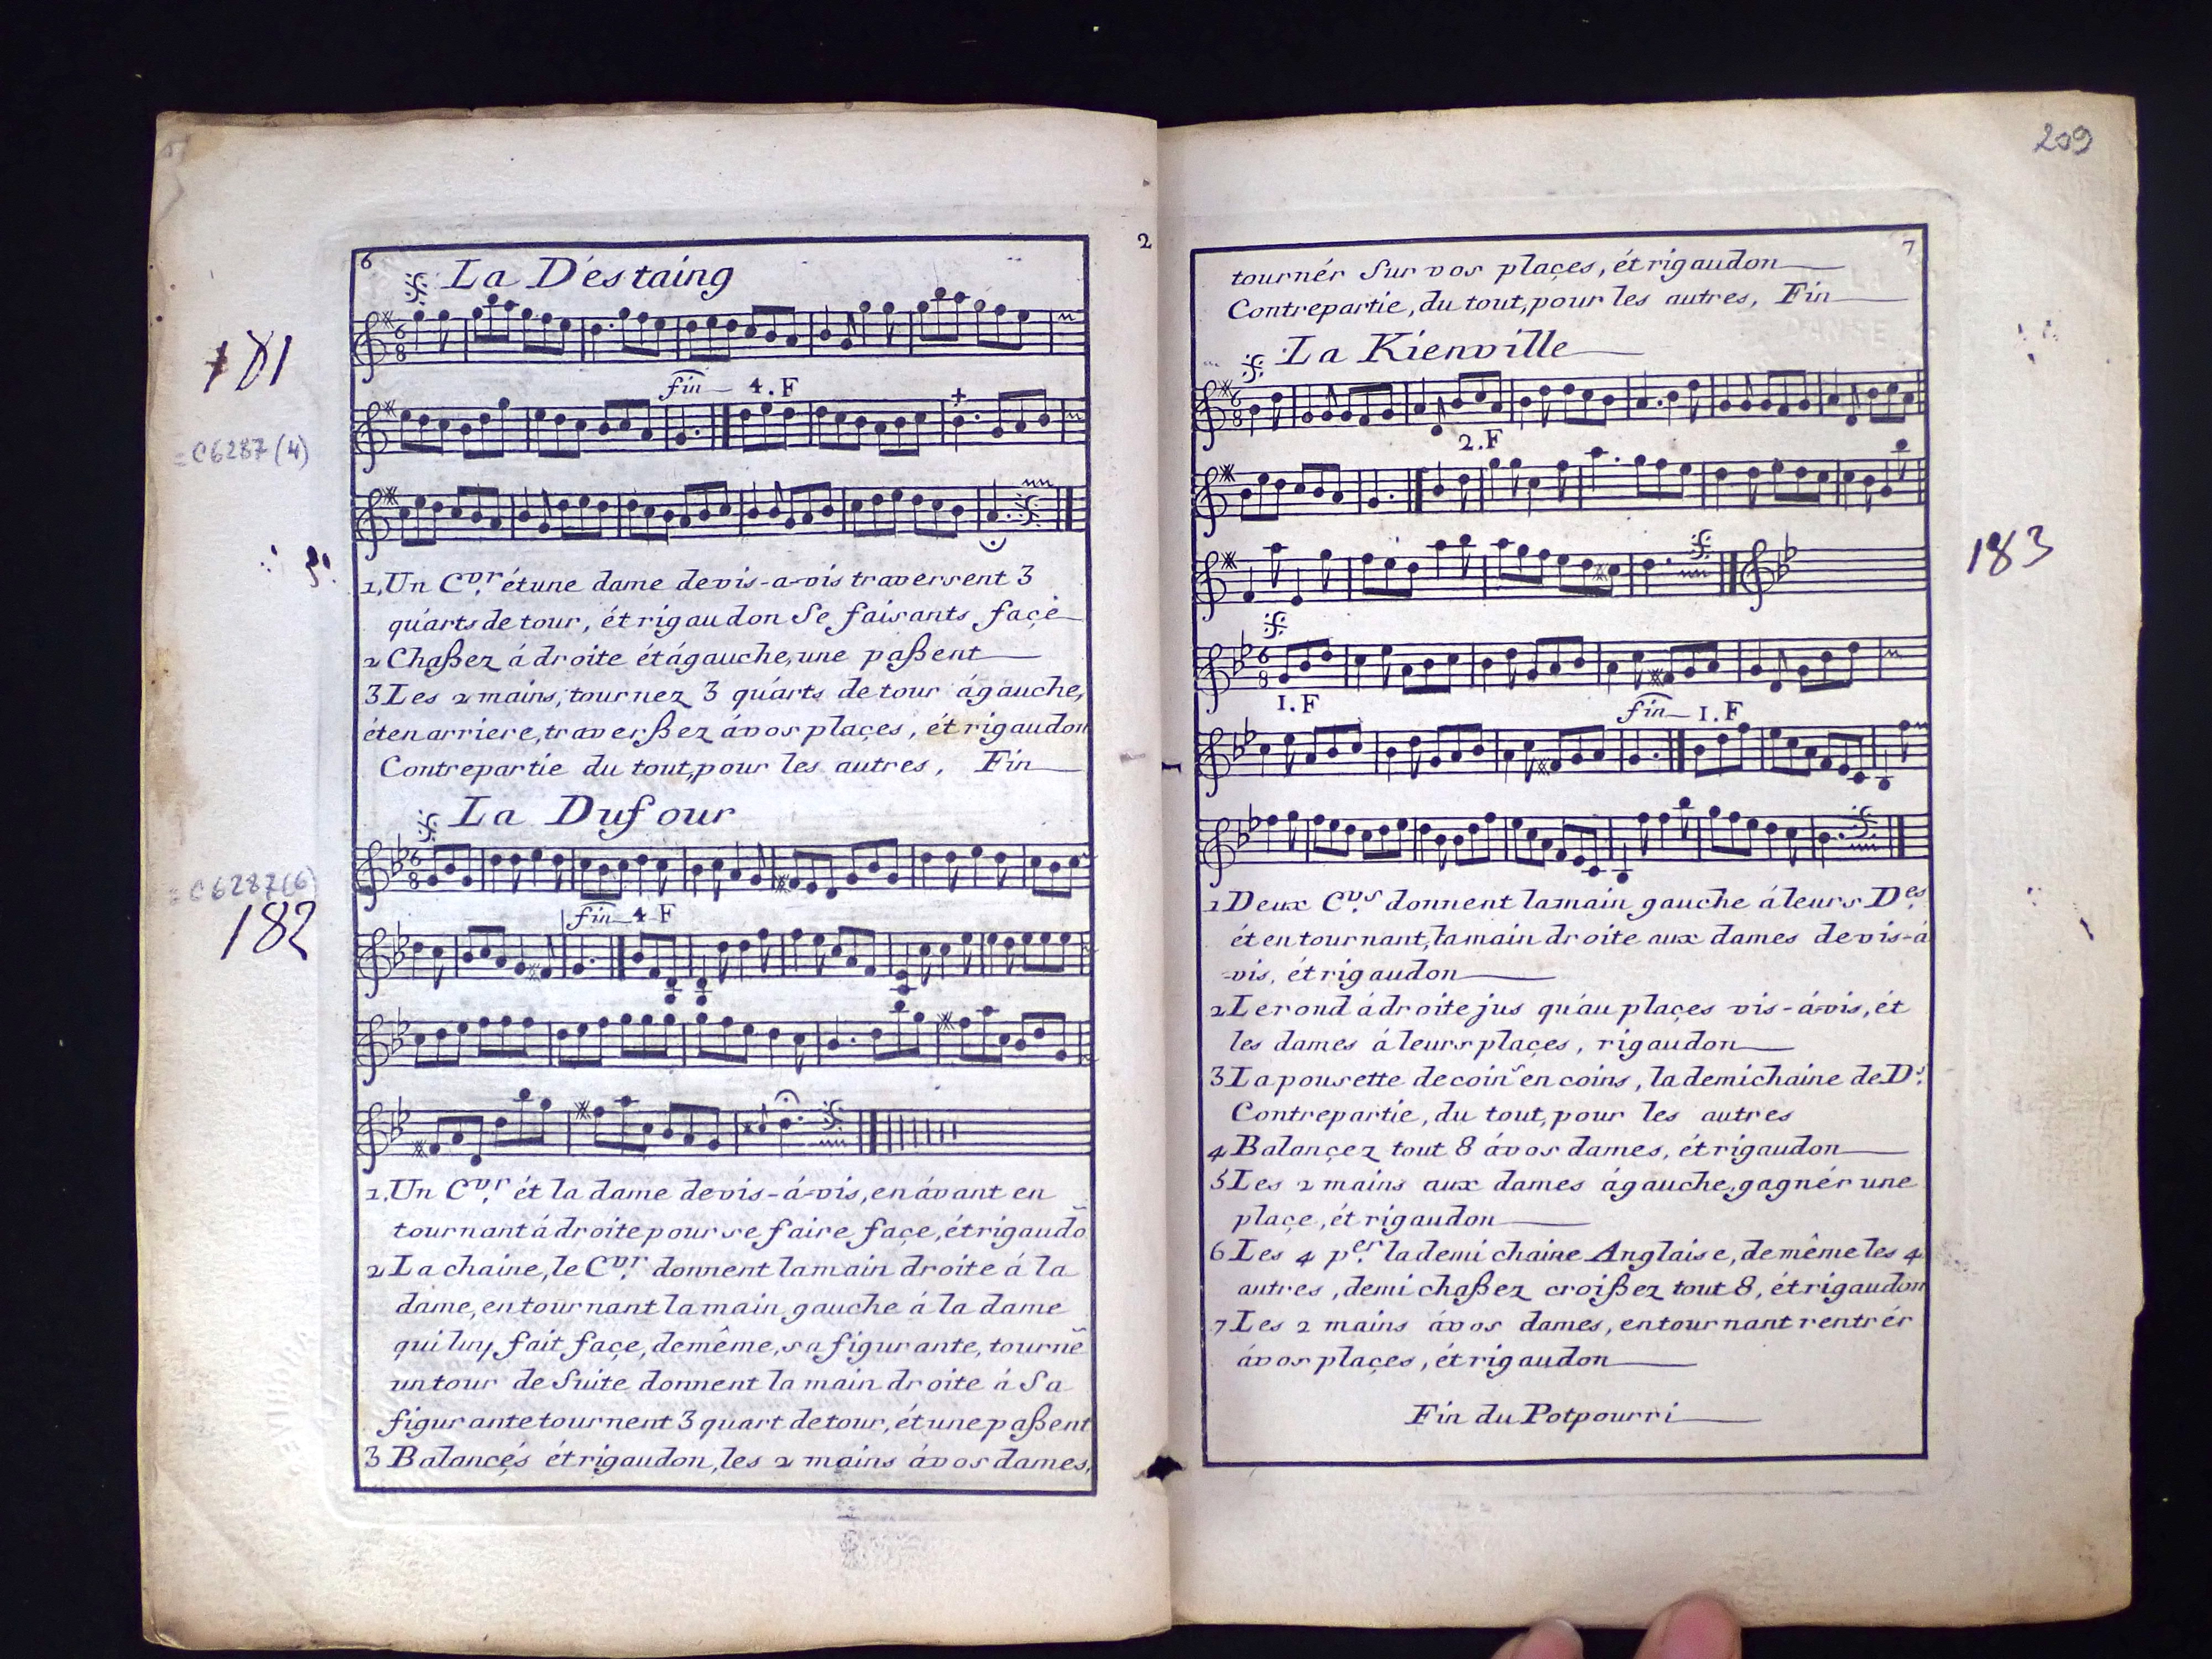 6
La D'estaing
181
fin 4.F
=C6287(4)
1,Un C.vr étune dame devis-a-vis traversent 3
quarts de tour, ét rigaudon Se faisants façe
2 Chaßez á droite étágauche, une paßent
3 Les 2 mains, tournez 3 quarts de tour ágauche,
éten arriere, traverßez ávos plaçes, ét rigaudon
Contrepartie du tout, pour les autres, Fin
La Dufour
=C6287(6)
182
fin 4 F
1,Un C.vr ét la dame devis-á-vis, en ávant en
tournant á droite pour se faire façe, étrigaudõ
2 La chaine, le C.vr donnent lamain droite á la
dame, entournant lamain gauche á la dame
qui luy fait façe, demême, sa figurante, tournẽ
untour de Suite donnent la main droite á Sa
figurante tournent 3 quart detour, ét une paßent
3 Balancés étrigaudon, les 2 mains ávos dames,
2
209
7
tournér Sur vos plaçes, ét rigaudon
Contrepartie, du tout, pour les autres, Fin
La Kienville
2.F
183
1.F
fin 1.F
1 Deux C.vs donnent lamain gauche áleurs D.es
ét en tournant, lamain droite aux dames devis-á
-vis, étrigaudon
2 Le rond á droite jus qu'au plaçes vis-á-vis, ét
les dames á leurs plaçes, rigaudon
3 La pousette de coins en coins, la demichaine de D.s
Contrepartie, du tout, pour les autres
4 Balançez tout 8 ávos dames, étrigaudon
5 Les 2 mains aux dames ágauche, gagnér une
plaçe, ét rigaudon
6 Les 4 p.ers la demi chaine Anglaise, demême les 4
autres, demi chaßez croißez tout 8, étrigaudon
7 Les 2 mains ávos dames, entournant rentrér
ávos plaçes, étrigaudon
Fin du Potpourri